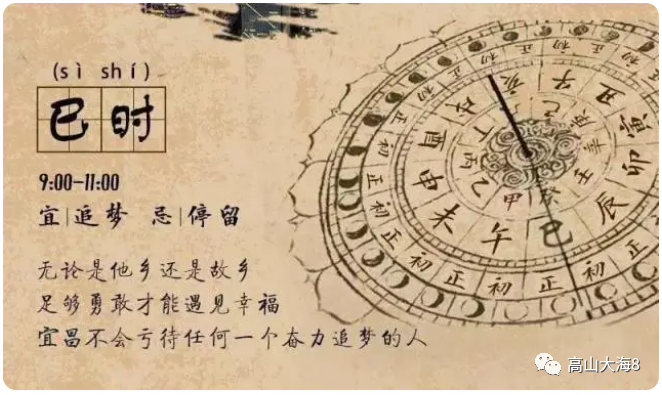 (sì shí)
巳时
9:00-11:00
宜|追梦 忌|停留
无论是他乡还是故乡
足够勇敢才能遇见幸福
宜昌不会亏待任何一个奋力追梦的人
子
丑
寅
卯
辰
巳
午
未
申
酉
戌
亥
甲
乙
丙
丁
己
庚
辛
壬
癸
初
正
初
正
初
正
初
正
初
正
初
正
高山大海8